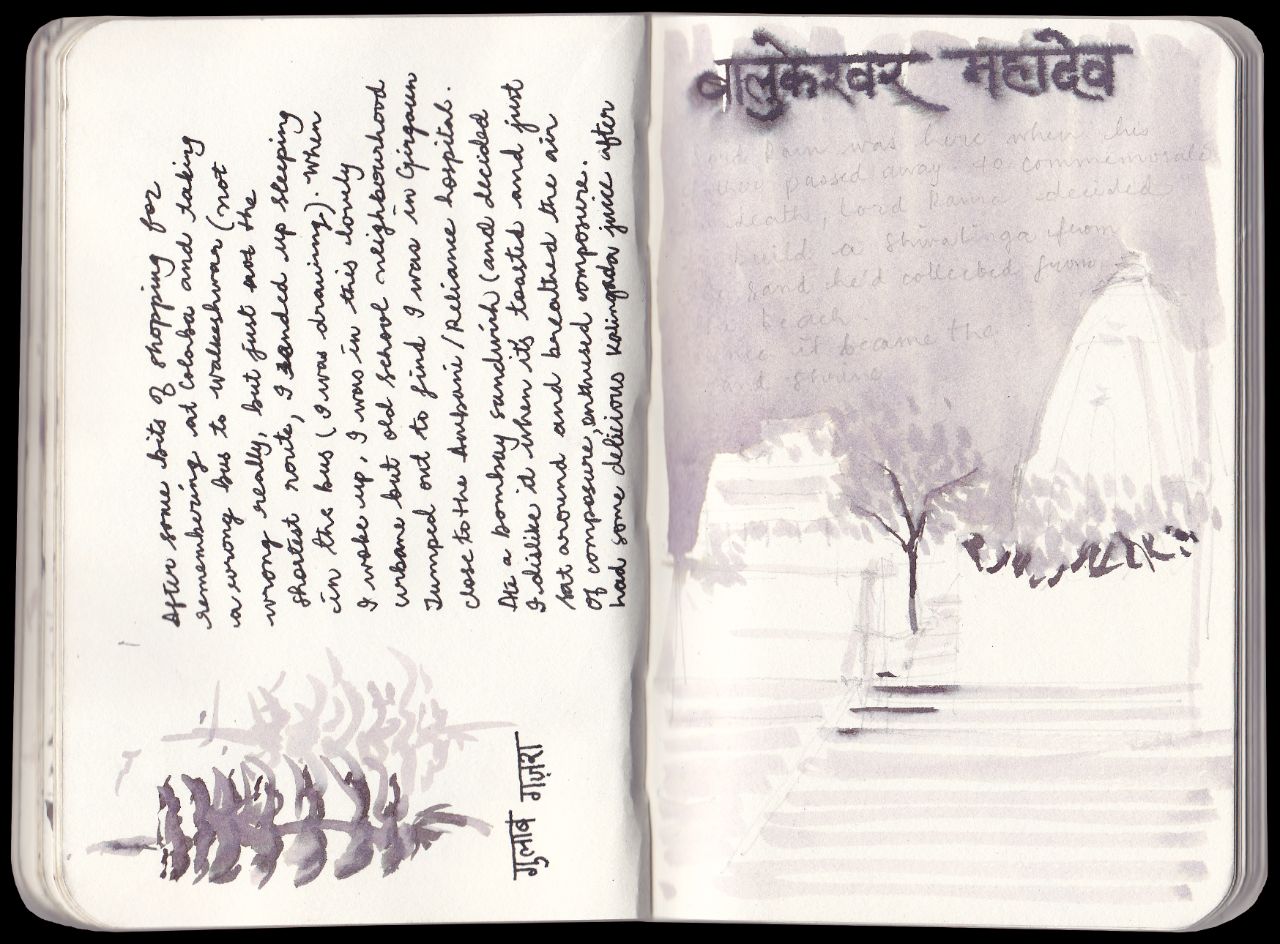 After some bits of shopping for
remembering at Colaba and taking
a wrong bus to walkeshwar (not
wrong really, but just not the
shortest route, I ended up sleeping
in the bus (I was drawing). When
I woke up, I was in this lovely
urbane but old school neighbourhood
Jumped out to find I was in Girgaun
close to the Ambani / Reliance hospital.
Ate a bombay sandwich (and decided
I dislike it when its toasted and just
sat around and breathed the air
of composure, enthused composure.
had some delicious Kalingada juice after
गुलाब गज़रा
बालुकेश्वर महादेव
Lord Ram was here when his
passed away. to commemorate
death, Lord Rama decided
build a Shivalinga from
sand he'd collected from
beach
it became the
and shrine